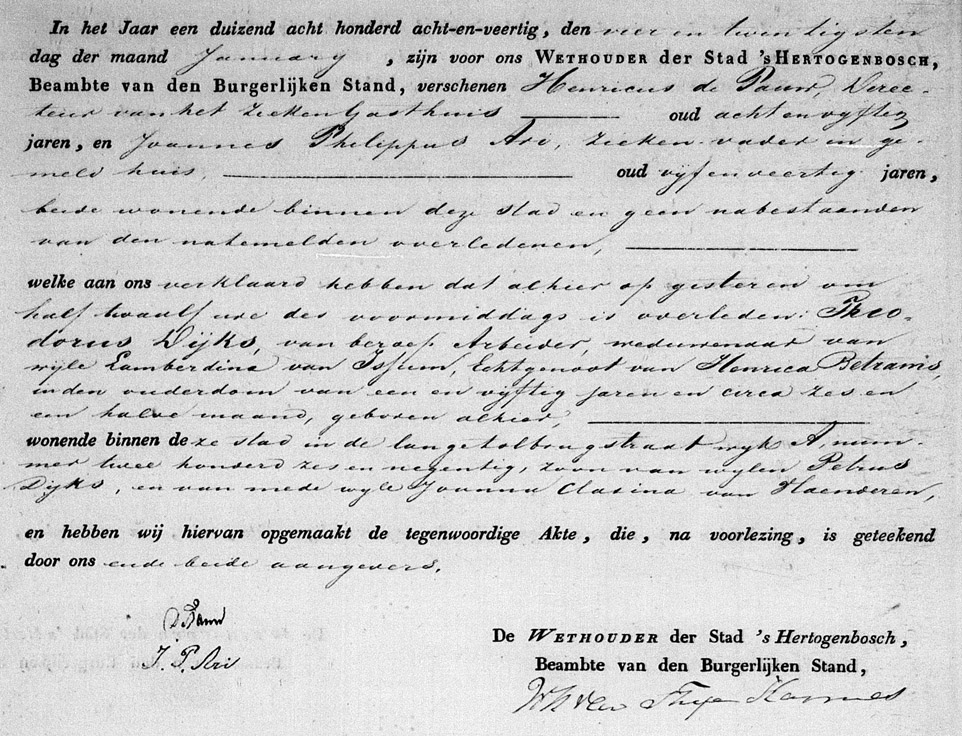 In het Jaar een duizend acht honderd acht-en-veertig, den vier en twentigsten
dag der maand January , zijn voor ons WETHOUDER der Stad 'sHERTOGENBOSCH,
Beambte van den Burgerlijken Stand, verschenen Henricus de Pauw, Direc-
teur van het Zieken Gasthuis oud acht en vyftig
jaren, en Joannes Philippus Ari, zieken-vader in ge-
meld huis, oud vijf en veertig jaren,
beide wonende binnen deze stad en geen nabestaanden
van den natemelden overledenen,
welke aan ons verklaard hebben dat alhier op gisteren om
half twaalf ure des voormiddags is overleden: Theo-
dorus Dijks, van beroep Arbeider, weduwenaar van
wyle Lamberdina van Issum, Echtgenoot van Henrica Betrams,
in den ouderdom van een en vyftig jaren en circa zes en
een halve maand, geboren alhier,
wonende binnen deze stad in de langetolbrugstraat wyk A, num-
mer twee honderd zes en negentig, zoon van wylen Petrus
Dijks, en van mede wyle Joanna Clasina van Haenderen,
en hebben wij hiervan opgemaakt de tegenwoordige Akte, die, na voorlezing, is geteekend
door ons ende beide aangevers.
d Pauw
J. P. Ari
De WETHOUDER der Stad 's Hertogenbosch,
Beambte van den Burgerlijken Stand,